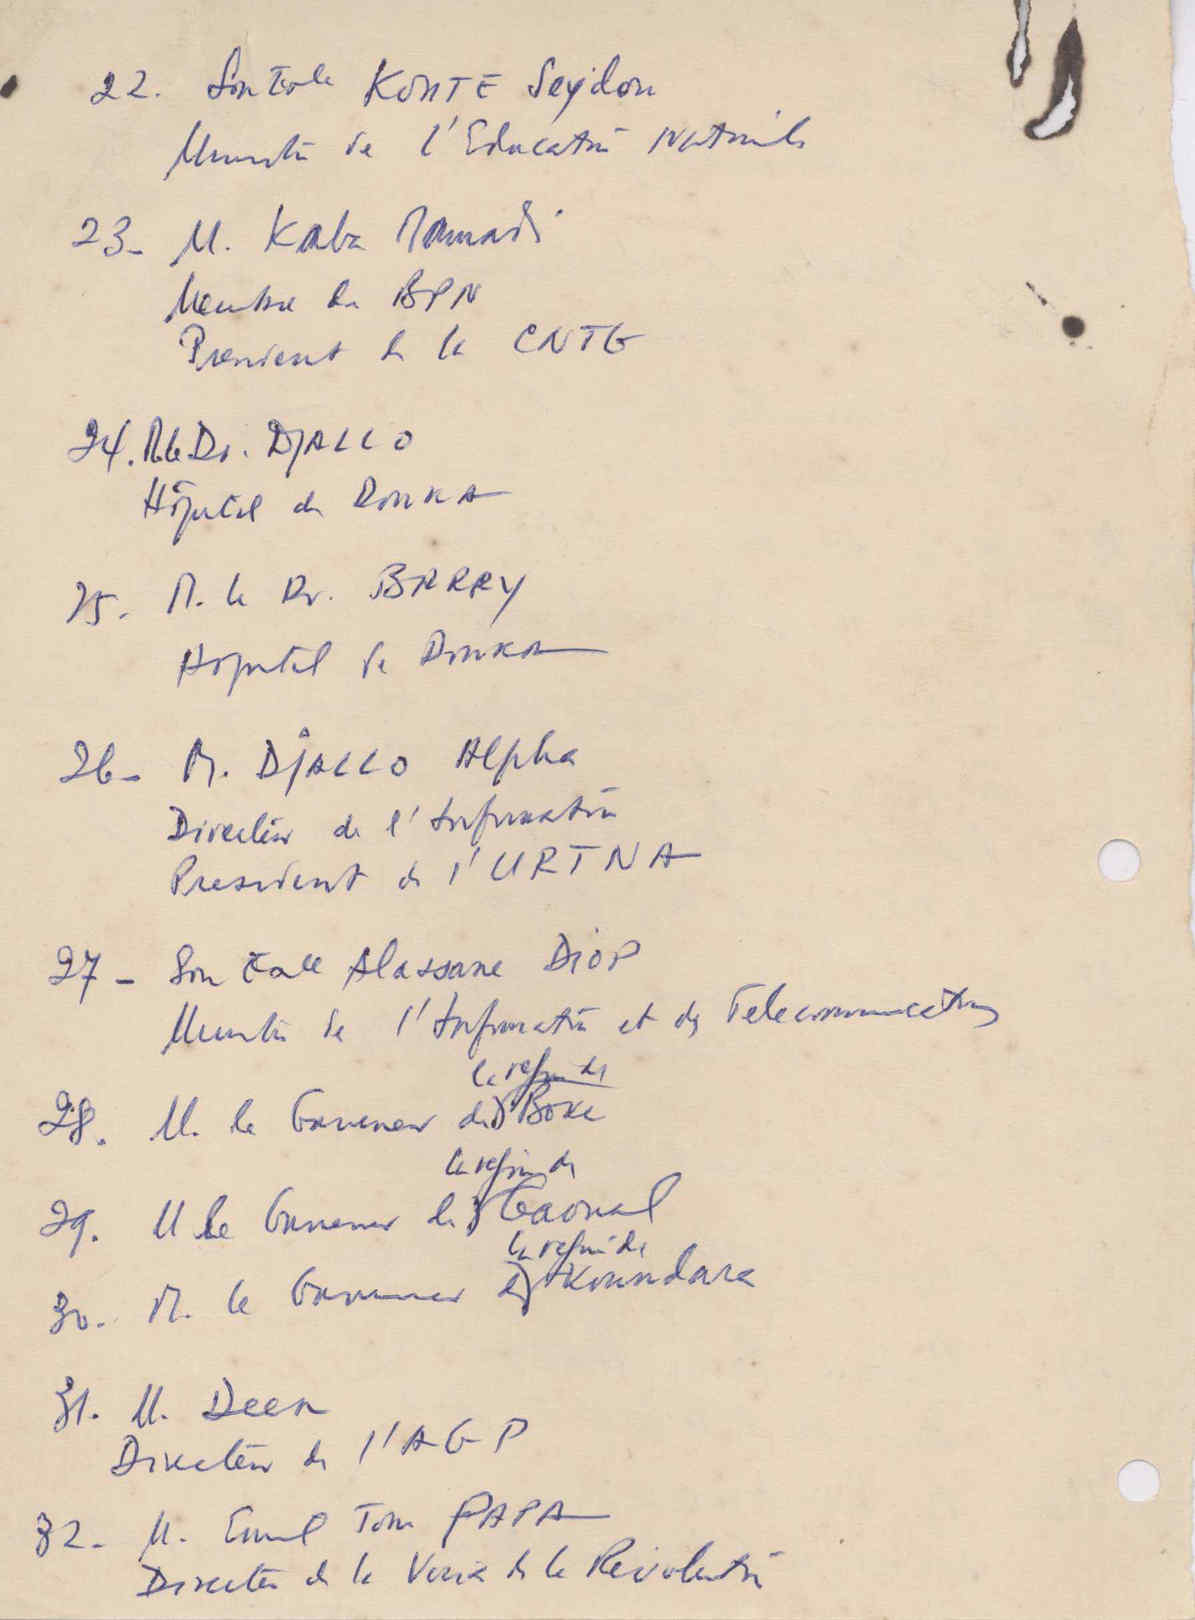 22. Son Excle KONTE Seydou
Ministre de l'Education Nationale
23- M. Kaba Mamadi
Membre du BPN
President de la CNTG
24. M. le Dr. DJALLO
Hôpital de DONKA
25. M. le Dr. BARRY
Hôpital de DONKA
26- M. DJALLO Alpha
Directeur de l'Information
President de l'URTNA
27- Son Excell Alassane DIOP
Ministre de l'Information et des Telecommunications
la region de
28. M. le Gouverneur de Boké
la region de
29. M le Gouverneur de Gaoual
la region de
30. M. le Gouverneur de Koundara
31. M. Deen
Directeur de l'AGP
32- M. Emil Tom PAPA
Directeur de la Voix de la Révolution